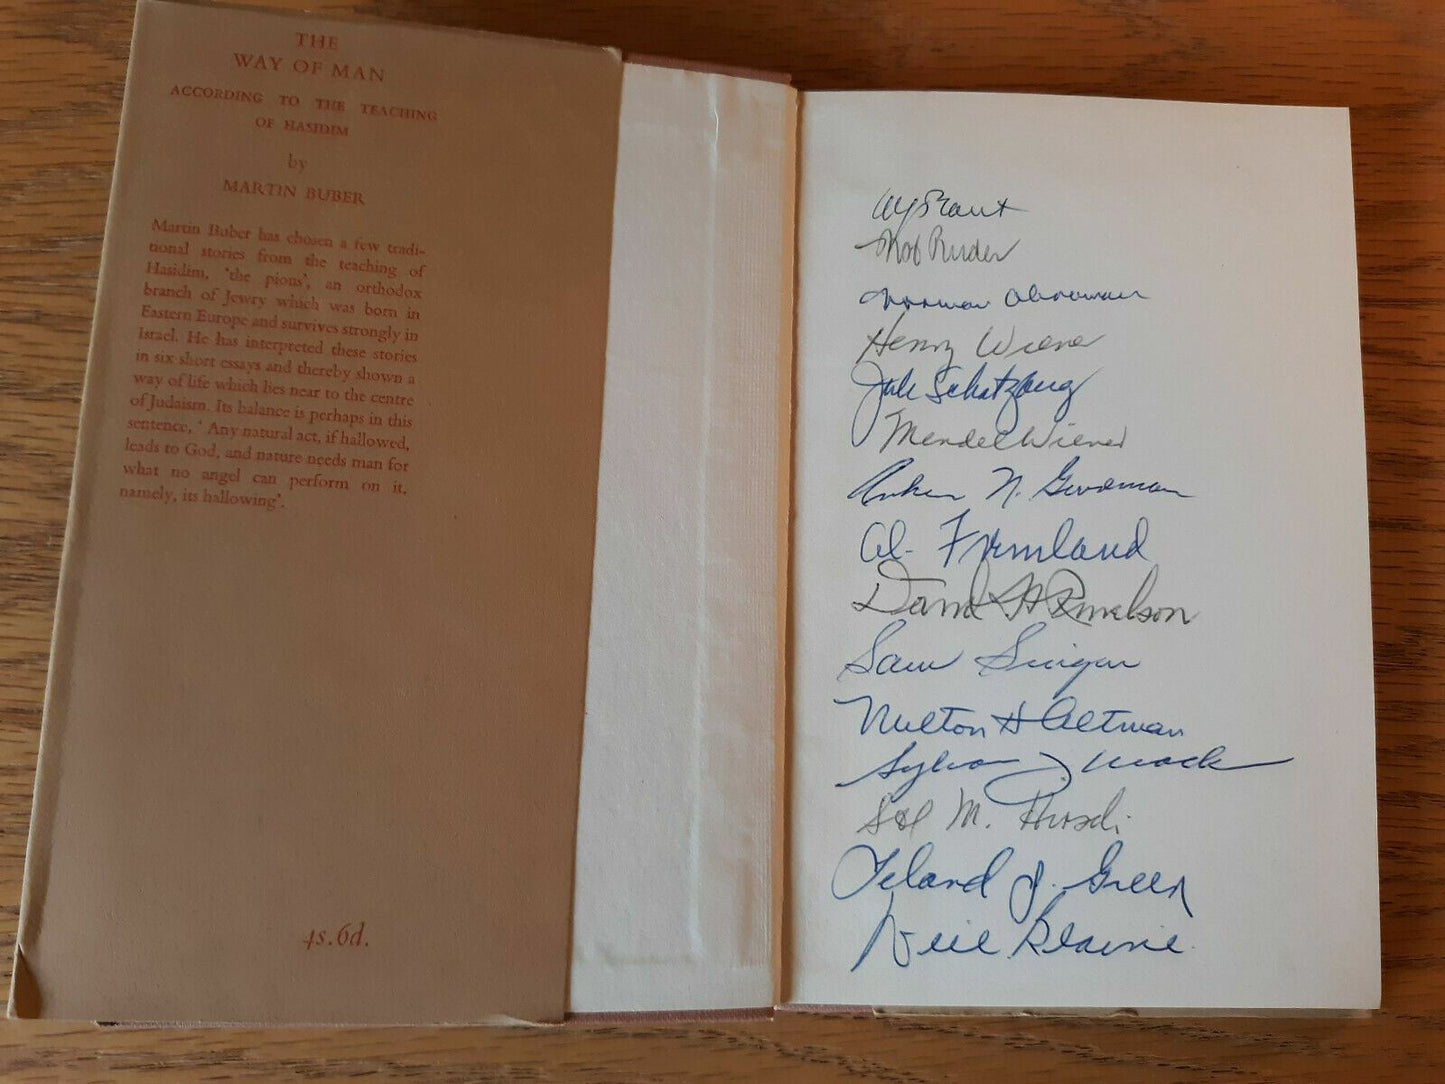 THE
WAY OF MAN
ACCORDING TO THE TEACHING
OF HASIDIM
by
MARTIN BUBER
Martin Buber has chosen a few tradi-
tional stories from the teaching of
Hasidim, 'the pious', an orthodox
branch of Jewry which was born in
Eastern Europe and survives strongly in
Israel. He has interpreted these stories
in six short essays and thereby shown a
way of life which lies near to the centre
of Judaism. Its balance is perhaps in this
sentence, ' Any natural act, if hallowed,
leads to God, and nature needs man for
what no angel can perform on it,
namely, its hallowing'.
4s.6d.
Ruder
Norman
Henry Wiener
Schatzberg
Mendel Wiener
N. Goodman
Al
David
Sam Singer
Milton H Altman
Sylvan J. Mack
Sol M.
Leland J. Green
Neil Blaine